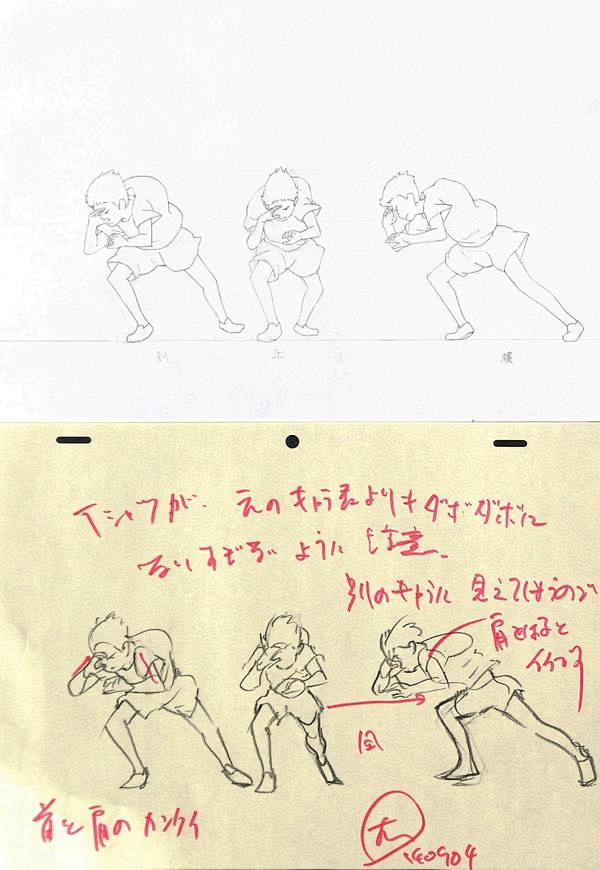 斜
正
横
Tシャツが、元のキャラ君よりもダボダボに
なりすぎぬように注意。
別のキャラに見えてしまうので
肩とほると
首と肩のカンケイ
140904